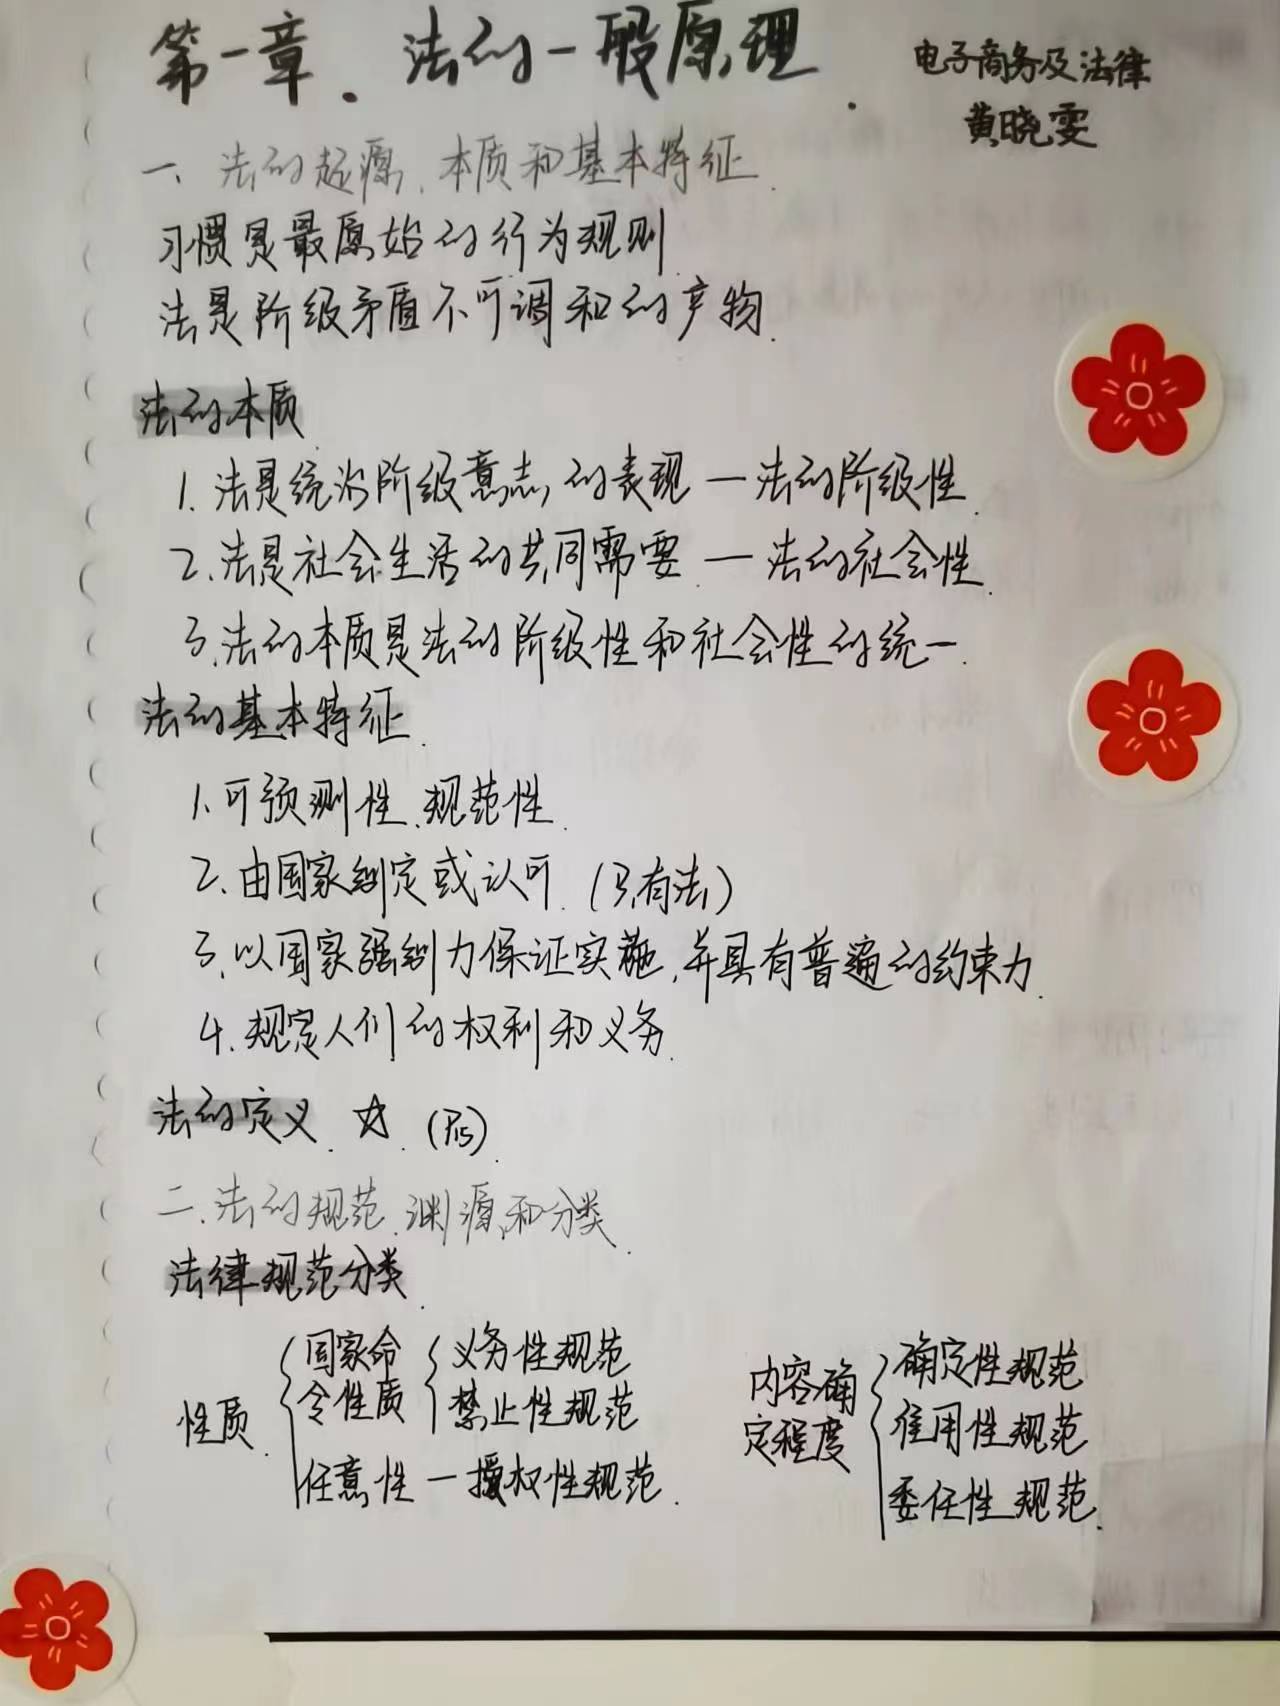 第一章. 法的一般原理.
电子商务及法律
黄晓雯
一、法的起源、本质和基本特征.
习惯是最原始的行为规则
法是阶级矛盾不可调和的产物.
法的本质
1. 法是统治阶级意志的表现 — 法的阶级性.
2. 法是社会生活的共同需要 — 法的社会性.
3. 法的本质是法的阶级性和社会性的统一.
法的基本特征.
1. 可预测性、规范性.
2. 由国家制定或认可. (只有法)
3. 以国家强制力保证实施, 并具有普遍的约束力.
4. 规定人们的权利和义务.
法的定义. ☆. (P15).
二. 法的规范、渊源和分类.
法律规范分类.
性质.
国家命
令性质
义务性规范
禁止性规范
任意性 — 授权性规范.
内容确
定程度
确定性规范
准用性规范
委任性规范.